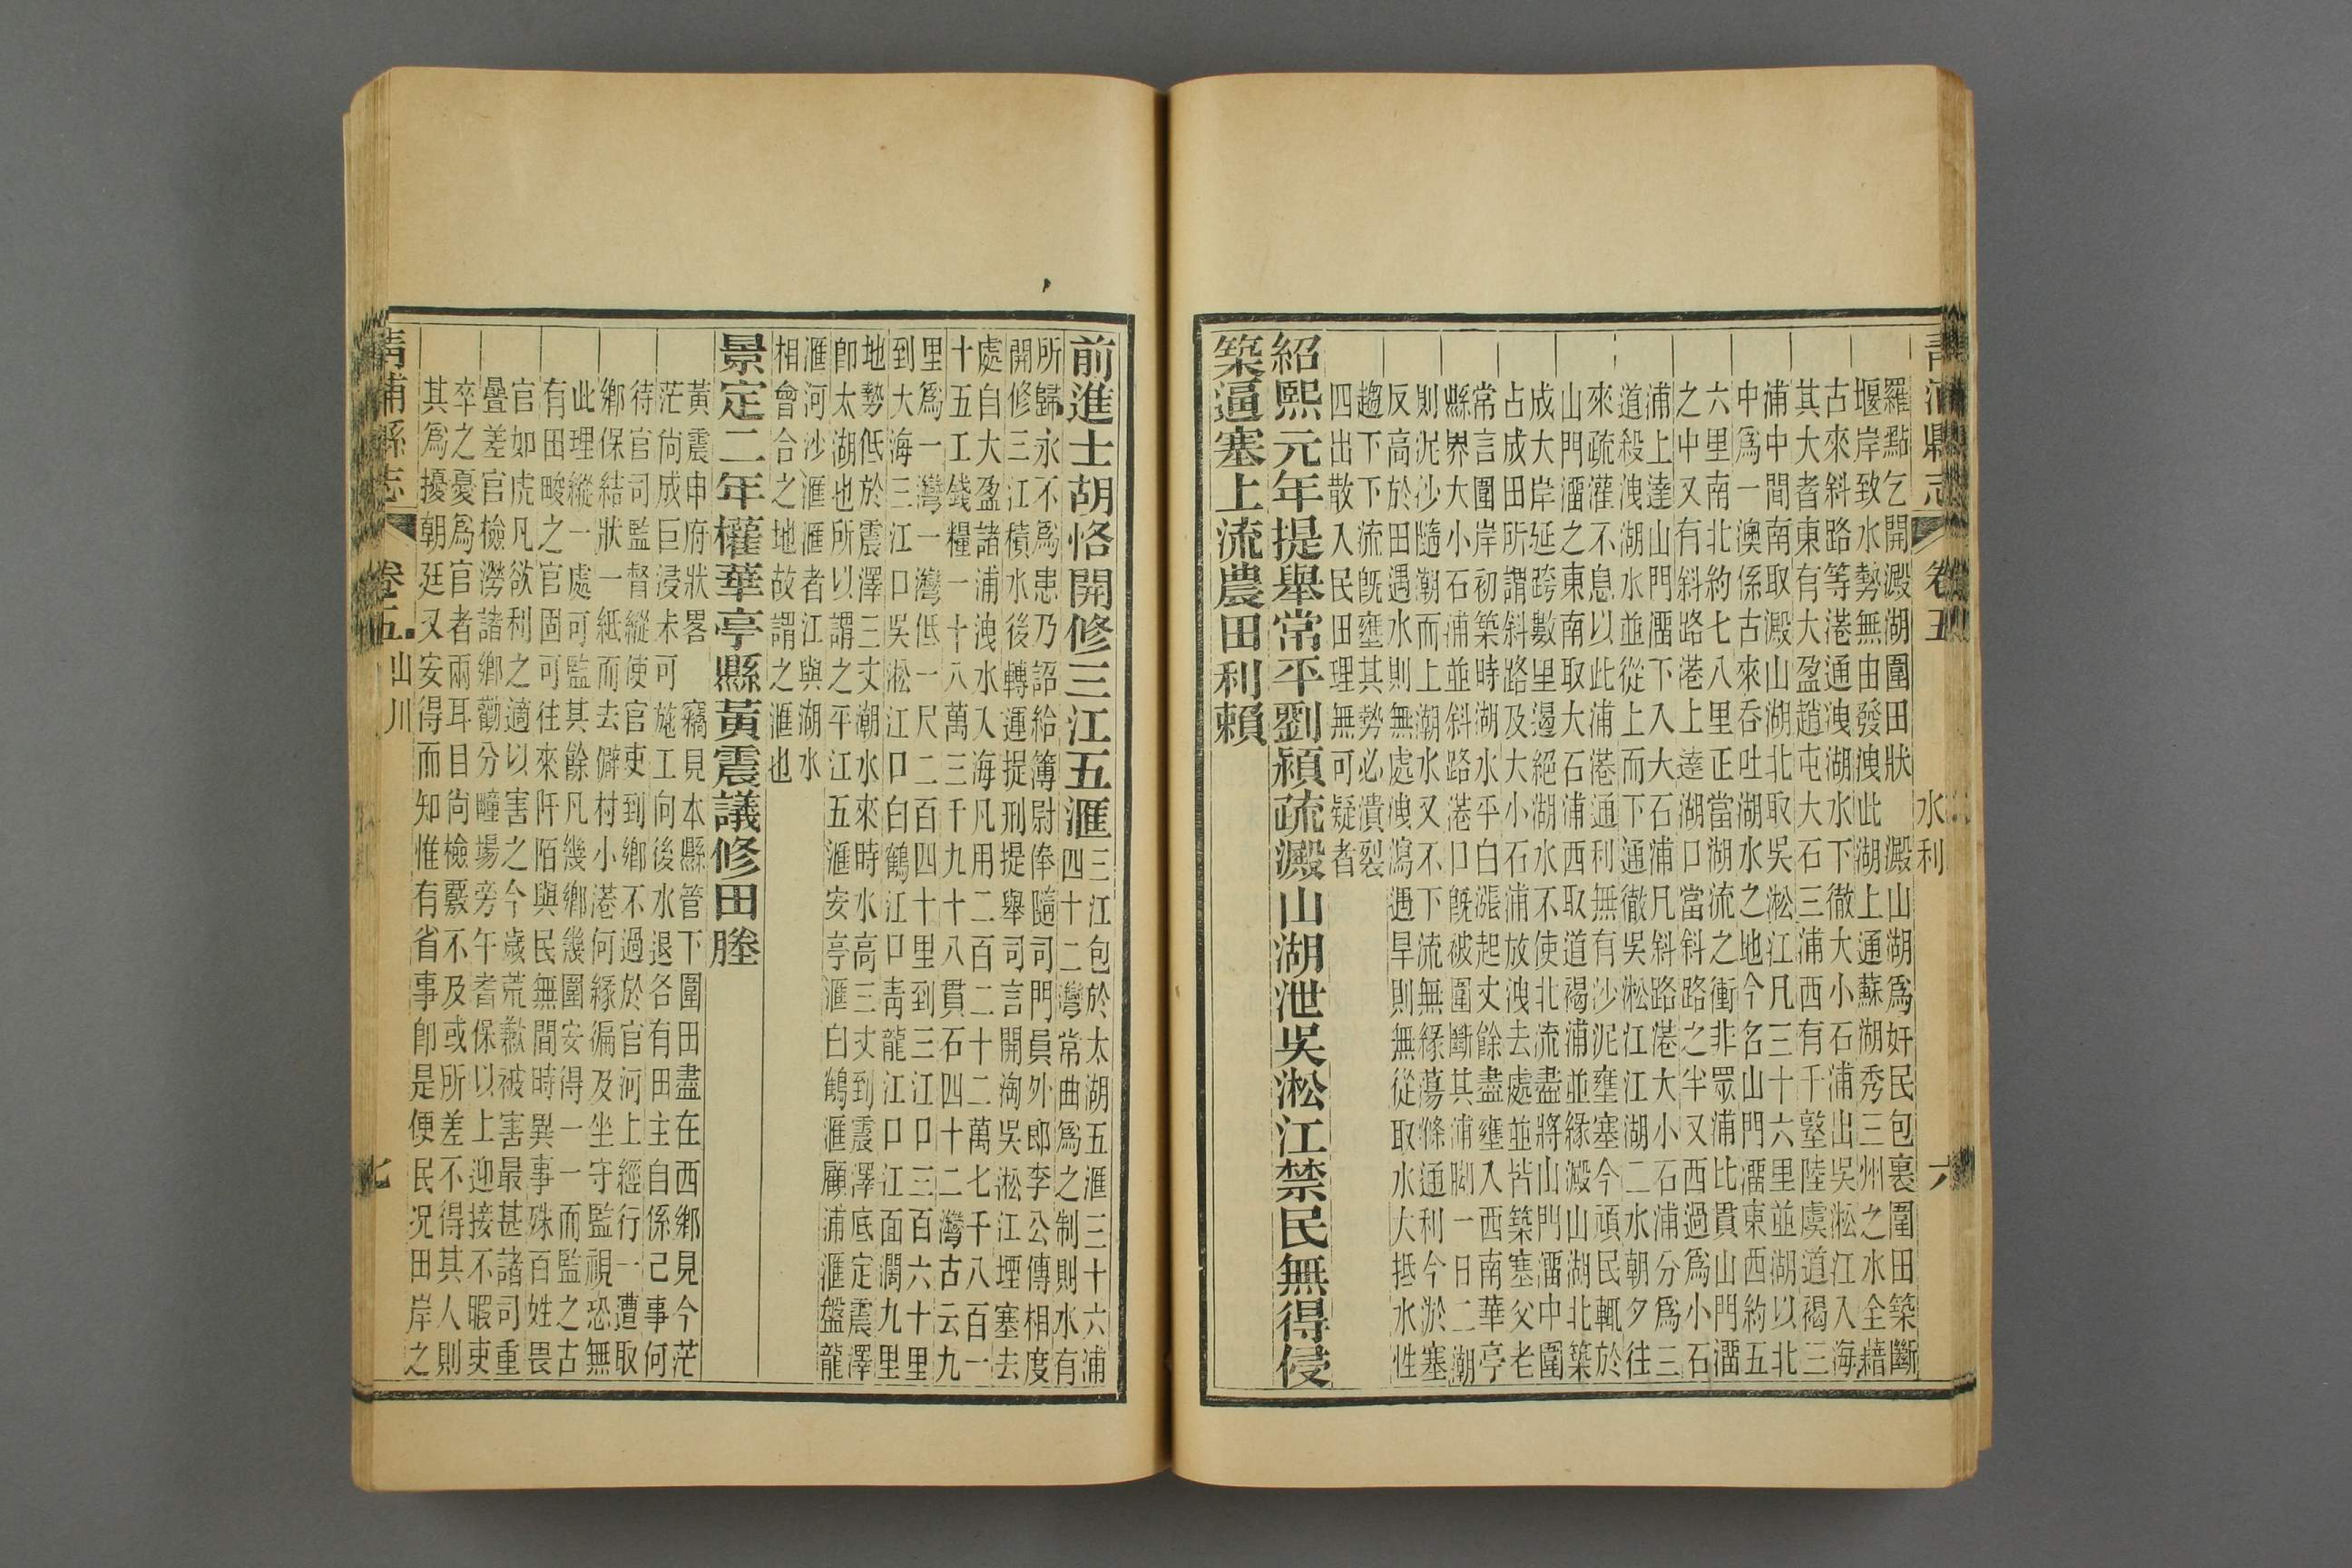 青浦縣志 卷五 水利 六
羅點乞開澱湖圍田狀 澱山湖爲奸民包裏圍田築斷
堰岸致水勢無由發洩此湖上通蘇湖秀三州之水全藉
古來斜路等港通洩湖水下徹大小石浦出吳淞江入海
其大者東有大盈趙屯大石三浦西有千墪陸虞道褐三
浦中間南取澱山湖北取吳淞江凡三十六里並湖以北
中爲一澳係古來吞吐湖水之地今名山門溜東西約五
六里南北約七八里正當湖流之衝非眾浦比貫山門溜
之中又有斜路港上達湖口當斜路之半又西過爲小石
浦上達山門溜下入大石浦凡斜路港大小石浦分爲三
道殺洩湖水並從上而下通徹吳淞江江湖二水朝夕往
來疏灌不息以此浦港通利無有沙泥壅塞今頑民輒於
山門溜之東南取大石浦西取道褐浦並緣澱山湖北築
成大岸延跨數里遏絕湖水不使北流盡將山門溜中圍
占成田所謂斜路及大小石浦放洩去處並皆築塞父老
常言圍岸初築時湖水平白漲起丈餘盡壅入西南華亭
縣界大小石浦並斜路港口旣被圍斷其浦脚一日二潮
則泥沙隨潮而上湖水又不下流無緣蕩滌通利今淤塞
反高於田遇水則無處洩瀉遇旱則無從取水大抵水性
趨下下流旣壅其勢必潰裂
四出散入民田理無可疑者
紹熙元年提舉常平劉潁疏澱山湖泄吳淞江禁民無得侵
築逼塞上流農田利賴
前進士胡恪開修三江五滙
三江包於太湖五滙三十六浦
四十二灣常曲爲之制則水有
所歸永不爲患乃詔給簿尉俸隨司門員外郎李公傳相度
開修三江積水後轉運提刑提舉司言開淘吳淞江堙塞去
處自大盈諸浦洩水入海凡用二百二十二萬七千八百一
十五工錢糧一十八萬三千九十八貫石四十二灣古云九
里爲一灣一灣低一尺二百四十里到三江口三百六十里
到大海三江口吳淞江口白鶴江口靑龍江口江面濶九里
地勢低於震澤三丈潮水來時水高三丈到震澤底定震澤
卽太湖也所以謂之平江五滙安亭滙白鶴滙顧浦滙盤龍
滙河沙滙滙者江與湖水
相會合之地故謂之滙也
景定二年權華亭縣黃震議修田塍
黃震申府狀畧 竊見本縣管下圍田盡在西鄉見今茫
茫尙成巨浸未可施工向後水退各有田主自係己事何
待官司監督縱使官吏到鄉不過於官河上經行一遭取
鄉保結狀一紙而去僻村小港何緣徧及坐守監視恐無
此理縱一處可監其餘凡幾鄉幾圍安得一一而監之古
有田畯之官固可往來阡陌與民無間時異事殊百姓畏
官如虎凡欲利之適以害之今歲荒歉被害最甚諸司重
疊差官檢澇諸鄉勸分疃場旁午耆保以上迎接不暇吏
卒之憂爲官者兩耳目尙檢覈不及或所差不得其人則
其爲擾朝廷又安得而知惟有省事卽是便民况田岸之
靑浦縣志 卷五 山川 七